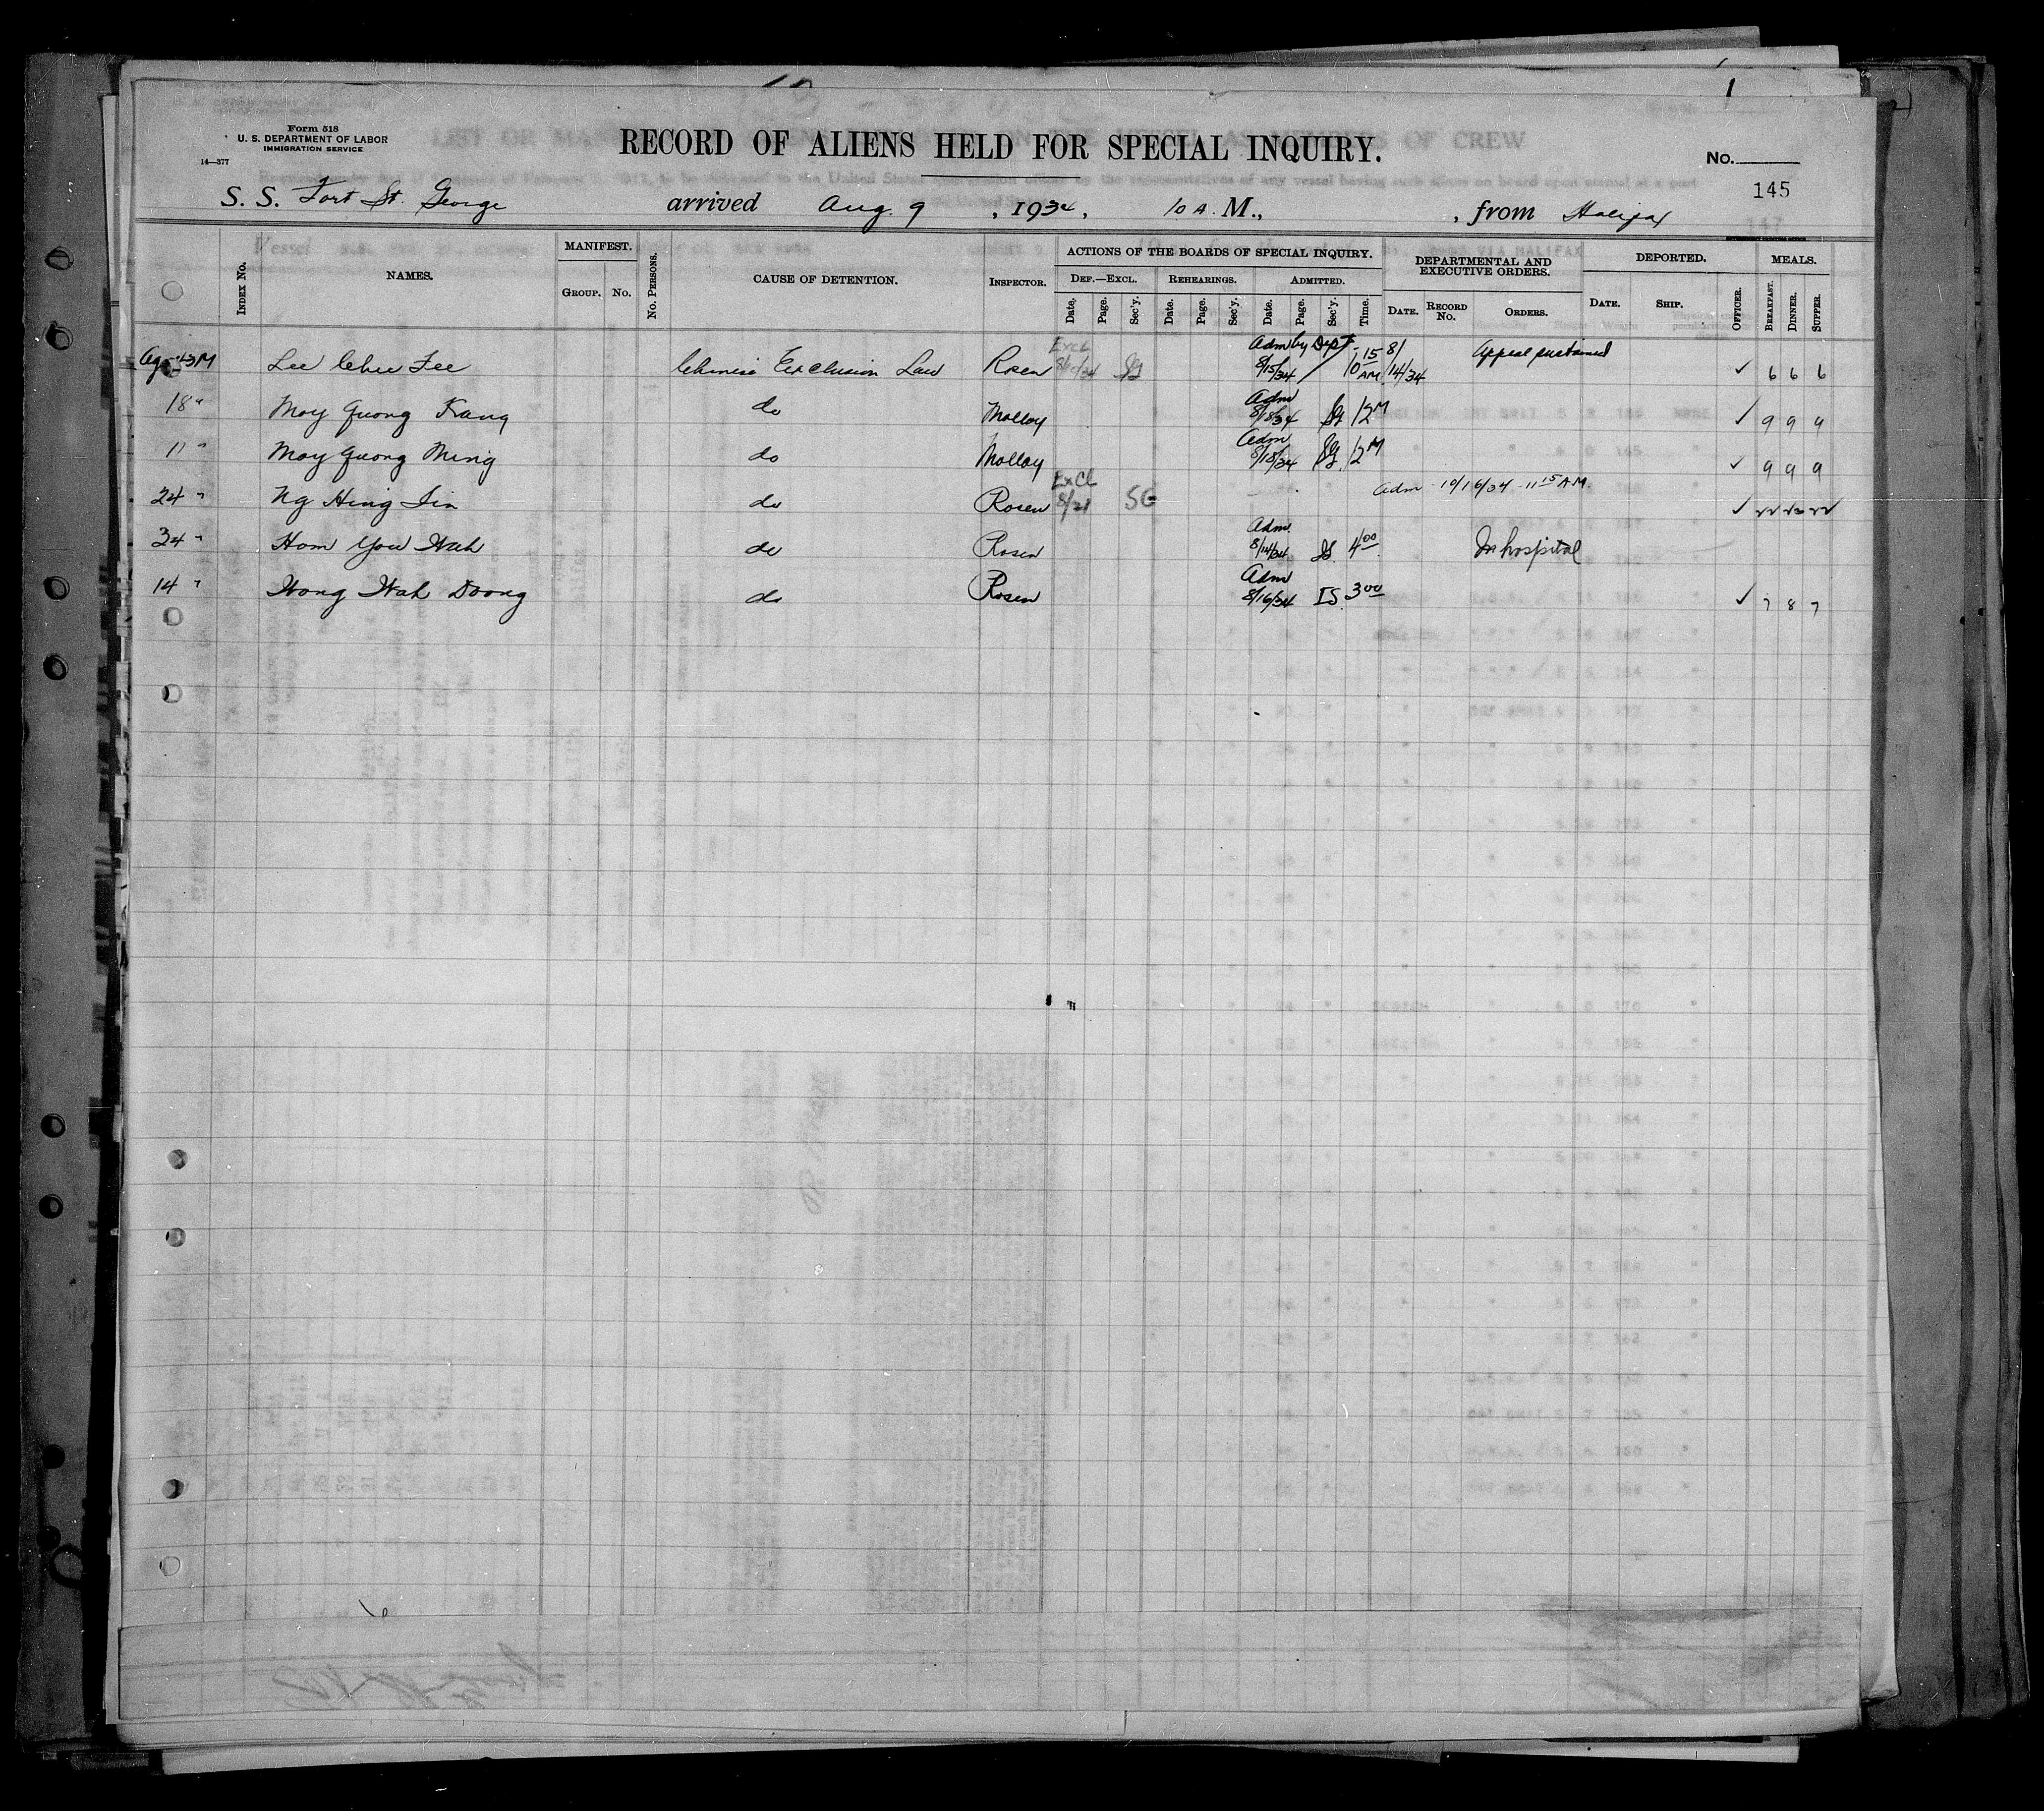 Form 518
U. S. DEPARTMENT OF LABOR
IMMIGRATION SERVICE
14—377
RECORD OF ALIENS HELD FOR SPECIAL INQUIRY.
No.
145
S. S. Fort St. George arrived Aug. 9, 1934, 10 A. M., , from Halifax
INDEX NO. NAMES. MANIFEST. GROUP. NO. NO. PERSONS. CAUSE OF DETENTION. INSPECTOR. ACTIONS OF THE BOARDS OF SPECIAL INQUIRY. DEF.—EXCL. Date. Page. Sec'y. REHEARINGS. Date. Page. Sec'y. ADMITTED. Date. Page. Sec'y. Time. DEPARTMENTAL AND EXECUTIVE ORDERS. DATE. RECORD NO. ORDERS. DEPORTED. DATE. SHIP. OFFICER. MEALS. BREAKFAST. DINNER. SUPPER.
Lee Chee Fee Chinese Exclusion Law Rosen Excl SG Adm by Dept. 8/15/34 10 15 AM 8/14/34 Appeal sustained ✓ 6 6 6
18 " Moy Quong Kang do Molloy Adm 8/18/34 SG 12 M ✓ 9 9 9
11 " Moy Quong Ming do Molloy Adm 8/18/34 SG 12 M ✓ 9 9 9
24 " Ng Hing Sin do Rosen Excl 8/21 SG Adm 10/16/34 - 11 15 A.M. ✓
34 " Hom You Wah do Rosen Adm. 8/14/34 SG 4 00 In hospital
14 " Wong Wah Doong do Rosen Adm 8/16/34 IS. 3 00 ✓ 7 8 7